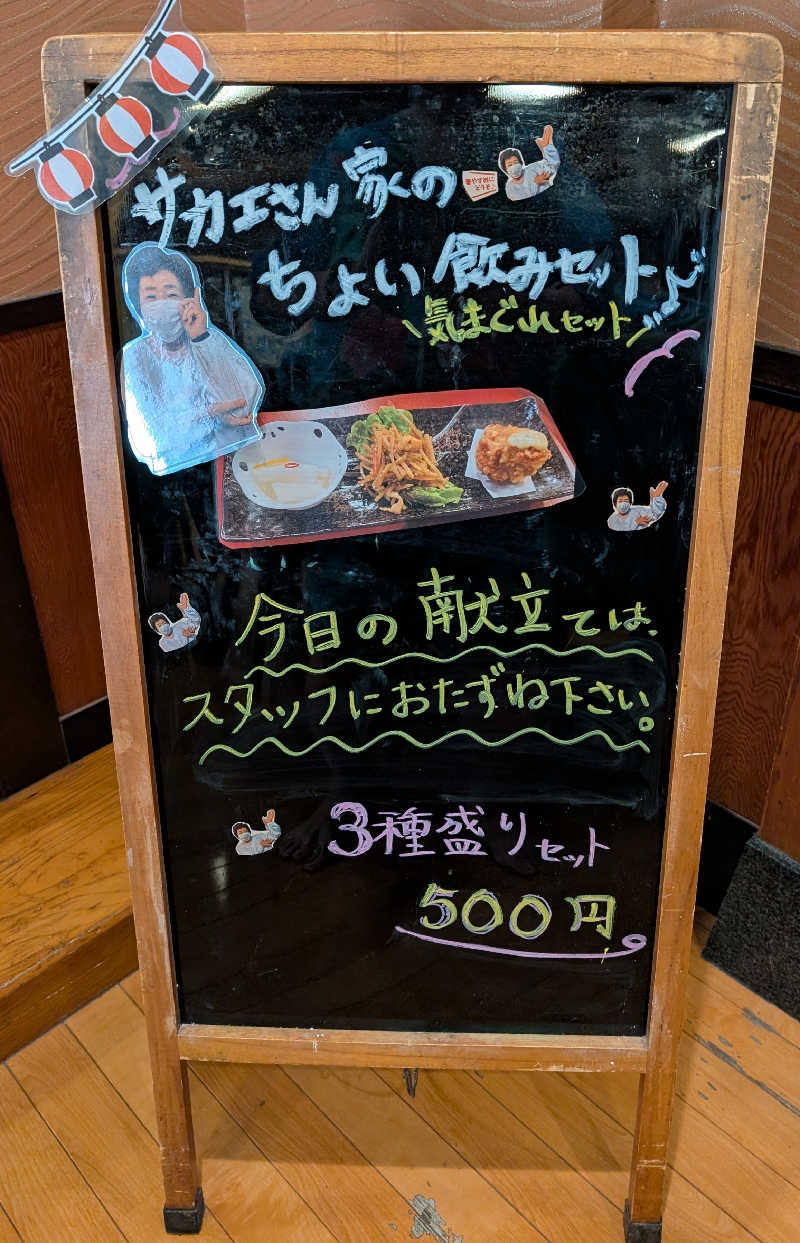 サカエさん家の
ちょい飲みセット♪
\気まぐれセット/
今日の献立ては、
スタッフにおたずね下さい。
3種盛りセット
500円